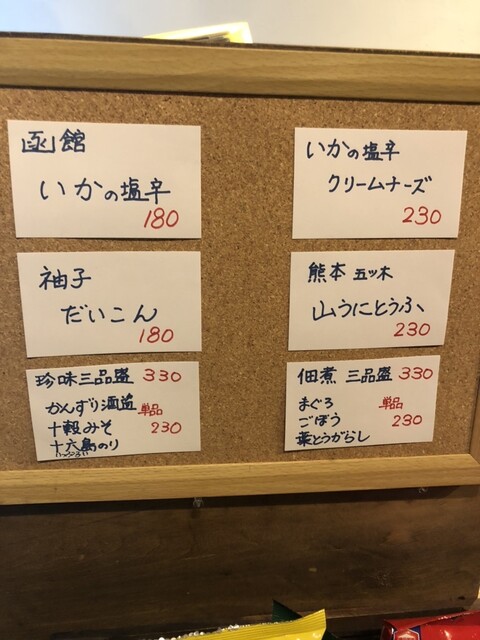 函館
いかの塩辛
180
いかの塩辛
クリームチーズ
230
袖子
だいこん
180
熊本 五ツ木
山うにとうふ
230
珍味三品盛 330
かんずり酒盗 単品
十穀みそ 230
十六島のり
佃煮 三品盛 330
まぐろ 単品
ごぼう 230
葉とうがらし